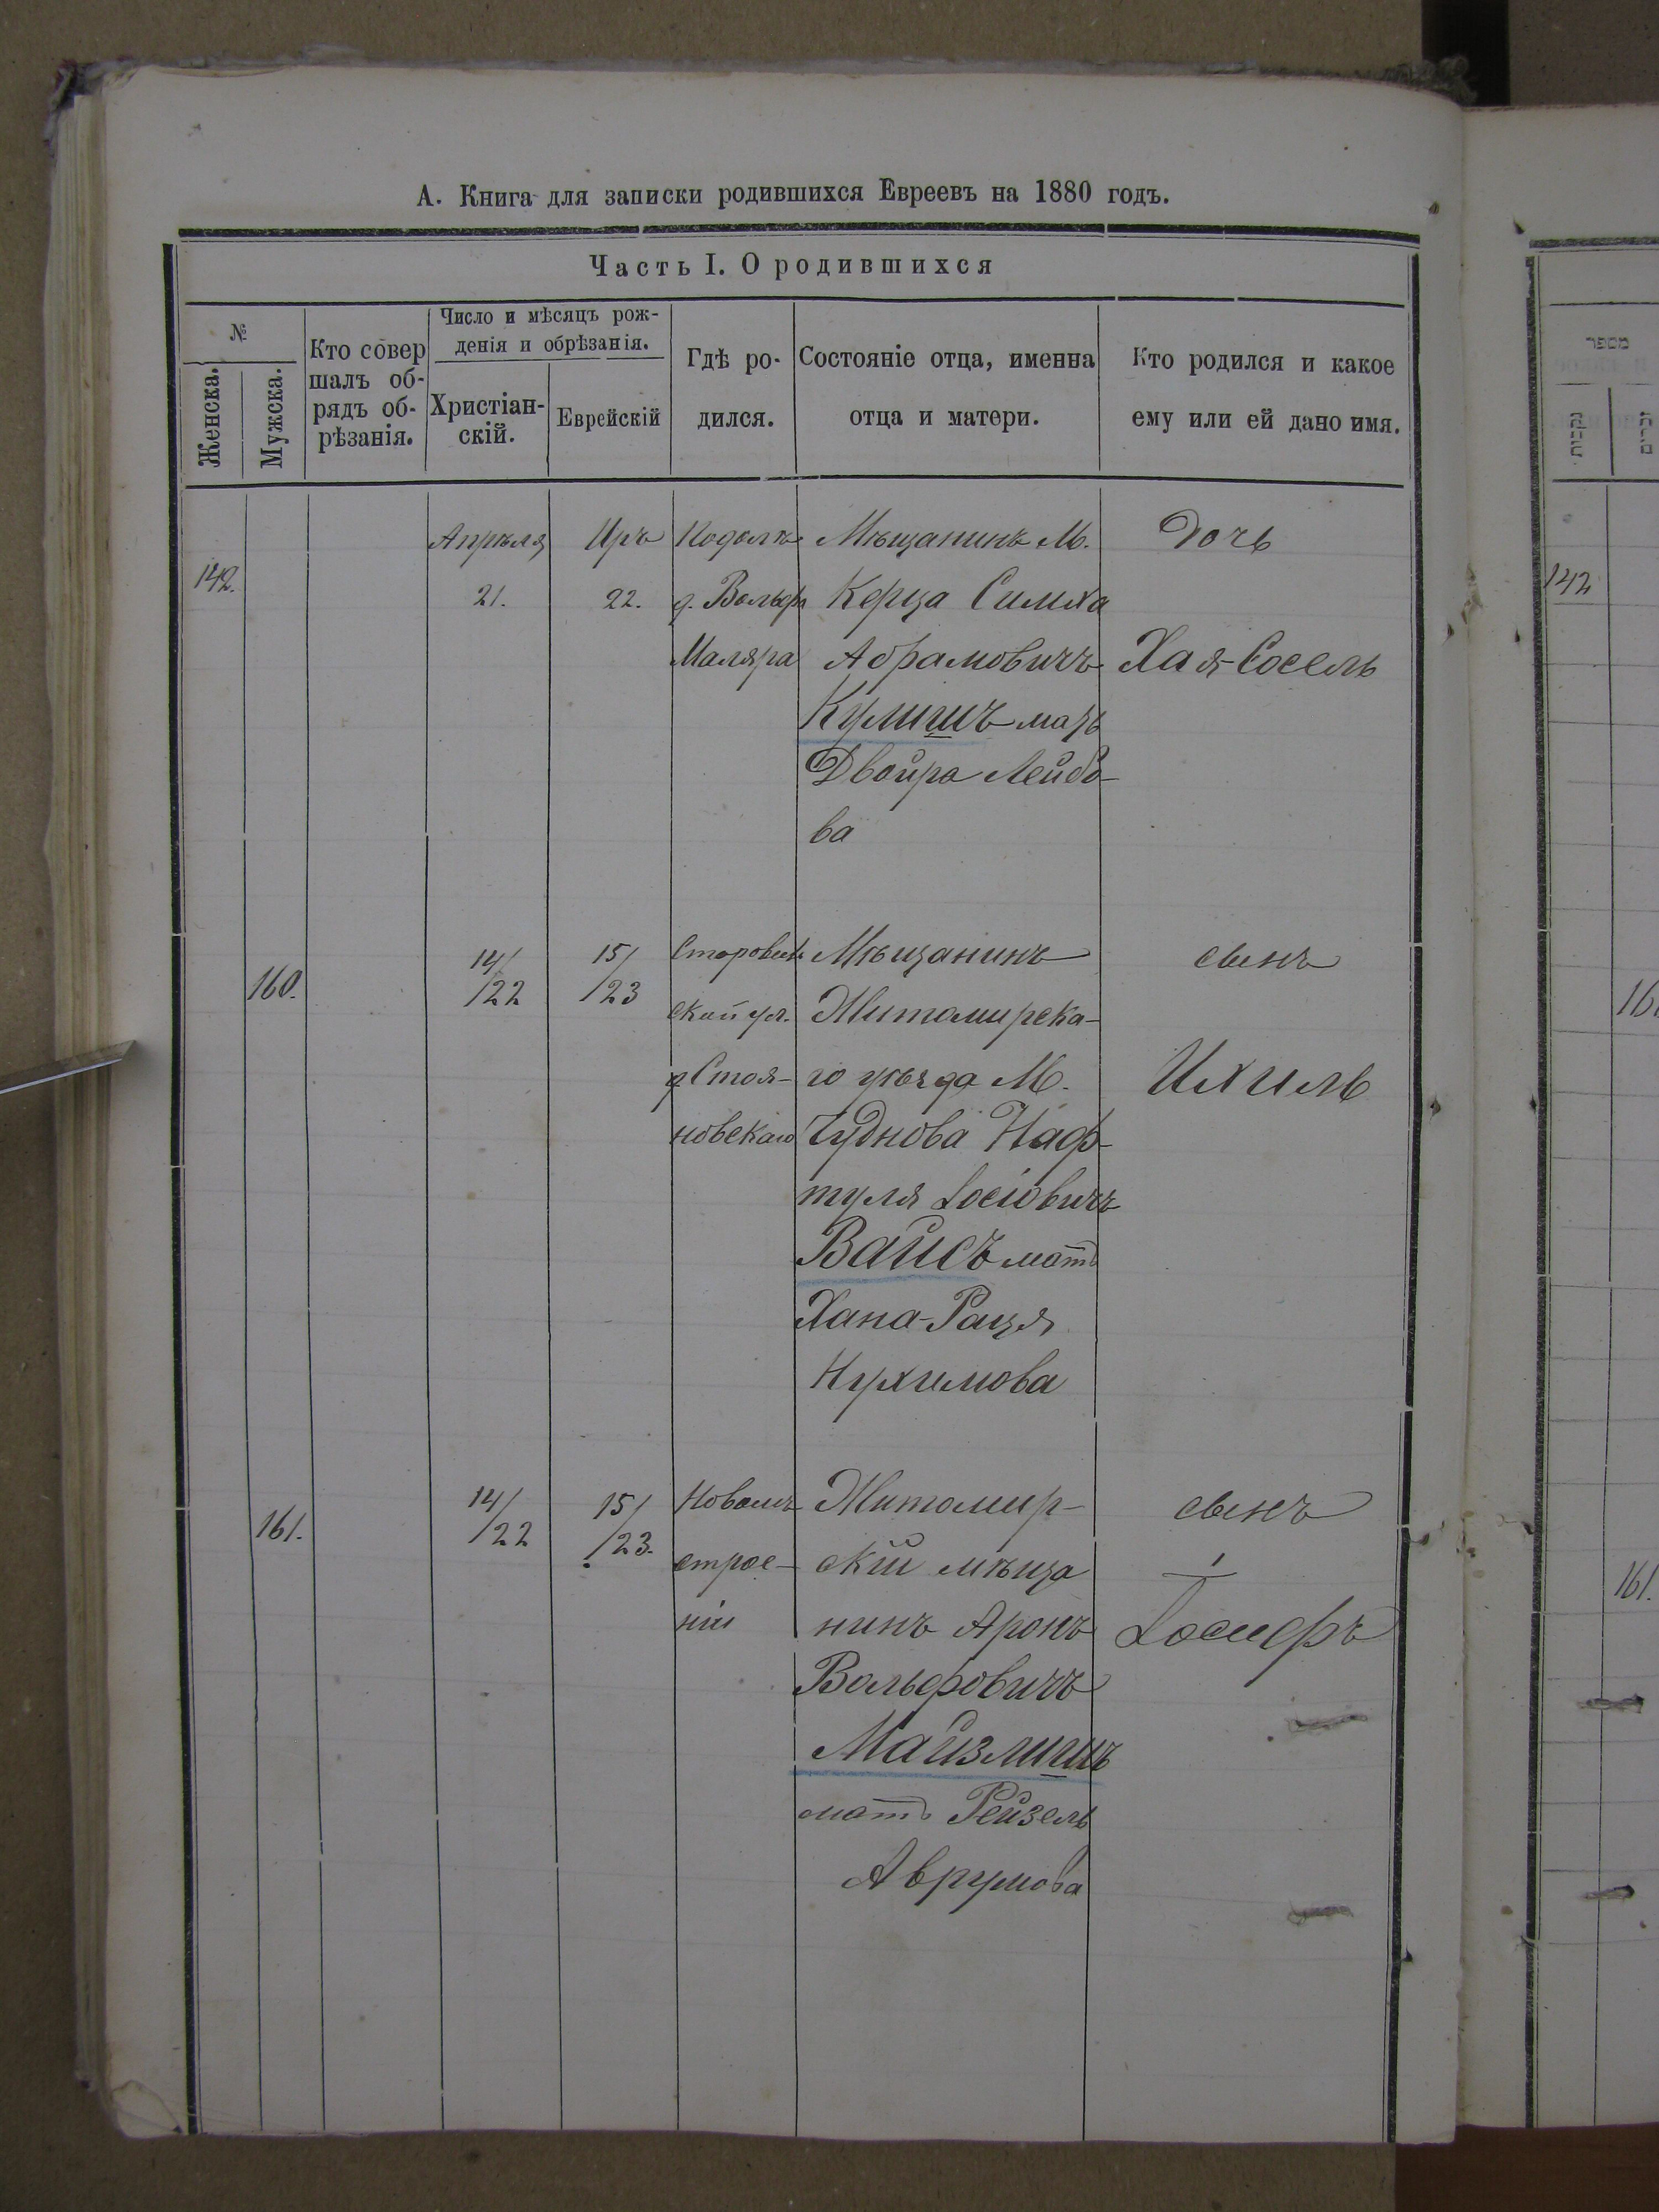 А. Книга для записки родившихся Евреевъ на 1880 годъ.
Часть I. О родившихся
№
Женска.
Мужска.
Кто совер
шалъ об-
рядъ об-
рѣзанія.
Число и мѣсяцъ рож-
денія и обрѣзанія.
Христіан-
скій.
Еврейскій
Гдѣ ро-
дился.
Состояніе отца, именна
отца и матери.
Кто родился и какое
ему или ей дано имя.
142.
Апрѣля
21.
Иръ
22.
д. Вольф
Маляра
Мѣщанинъ М.
Керца Симха
Абрамовичъ
Кулишъ мать
Двойра Лейбо-
ва
Дочь
Хая-Сосель
160.
14/
/22
15/
/23
ской ул.
д Стоя-
новскаго
Мѣщанинъ
Житомирска-
го уѣзда М.
Чуднова Наф-
туля Іосіовичъ
Вайсъ мать
Хана-Раця
Нухимова
сынъ
Ихиль
161.
14/
/22
15/
/23.
Новомъ
строе-
ніи
Житомир-
скій мѣща
нинъ Аронъ
Вольфовичъ
Майзлишъ
мать Рейзель
Аврумова
сынъ
Іосифъ
מספר
נקבות
זכרים
142
161.